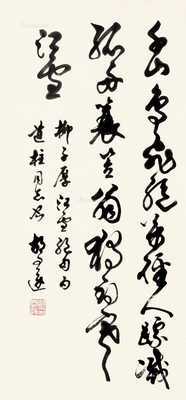 千山鳥飛絕萬徑人蹤滅
孤舟蓑笠翁獨釣寒
江雪
柳子厚江雪絕句
建柱同志 胡問遂